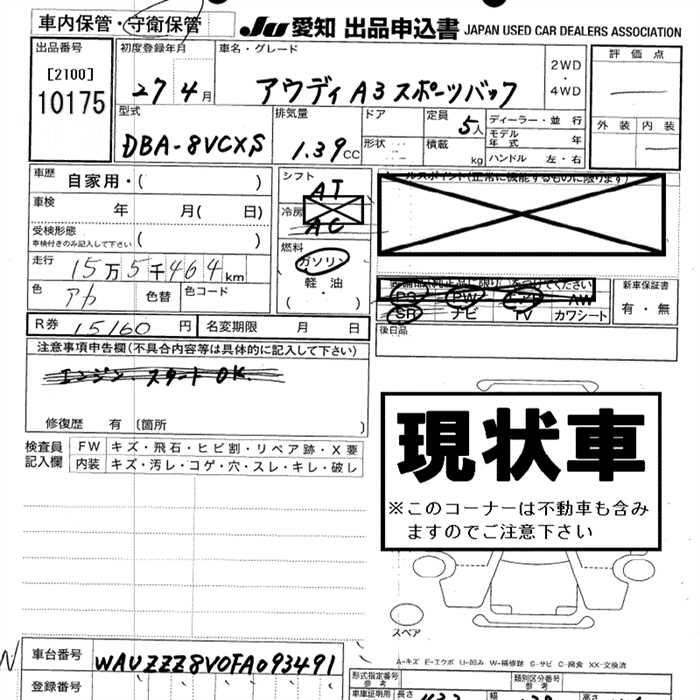 車内保管・守衛保管
JU 愛知 出品申込書 JAPAN USED CAR DEALERS ASSOCIATION
出品番号
[2100]
10175
初度登録年月
27 4月
車名・グレード
アウディ A3 スポーツバック
2WD
・
4WD
評価点
外装 内装
型式
DBA-8VCXS
排気量
1.39cc
ドア
形状
定員
5人
積載 kg
ディーラー・並行
モデル年式 年
ハンドル 左・右
車歴
自家用・( )
車検
年 月( 日)
受検形態
車検付きのみ記入して下さい ( )
走行
15万5千464km
色
アカ
色替
色コード
シフト
AT
冷房
AC
燃料
ガソリン
軽油
( ・ )
セールスポイント(正常に機能するものに限ります)
PS PW AW
SR ナビ TV カワシート
新車保証書
有・無
後日品
R券 15160円 名変期限 月 日
注意事項申告欄(不具合内容等は具体的に記入して下さい)
エンジン スタート OK.
修復歴 有 〔箇所 〕
検査員記入欄
FW キズ・飛石・ヒビ割・リペア跡・X要
内装 キズ・汚レ・コゲ・穴・スレ・キレ・破レ
現状車
※このコーナーは不動車も含み
ますのでご注意下さい
スペア
A-キズ E-エクボ U-凹み W-補修跡 S-サビ C-腐食 XX-交換済
車台番号
WAUZZZ8V0FA093491
登録番号
形式指定番号
参考
類別区分番号
参考
車庫証明用 長さ